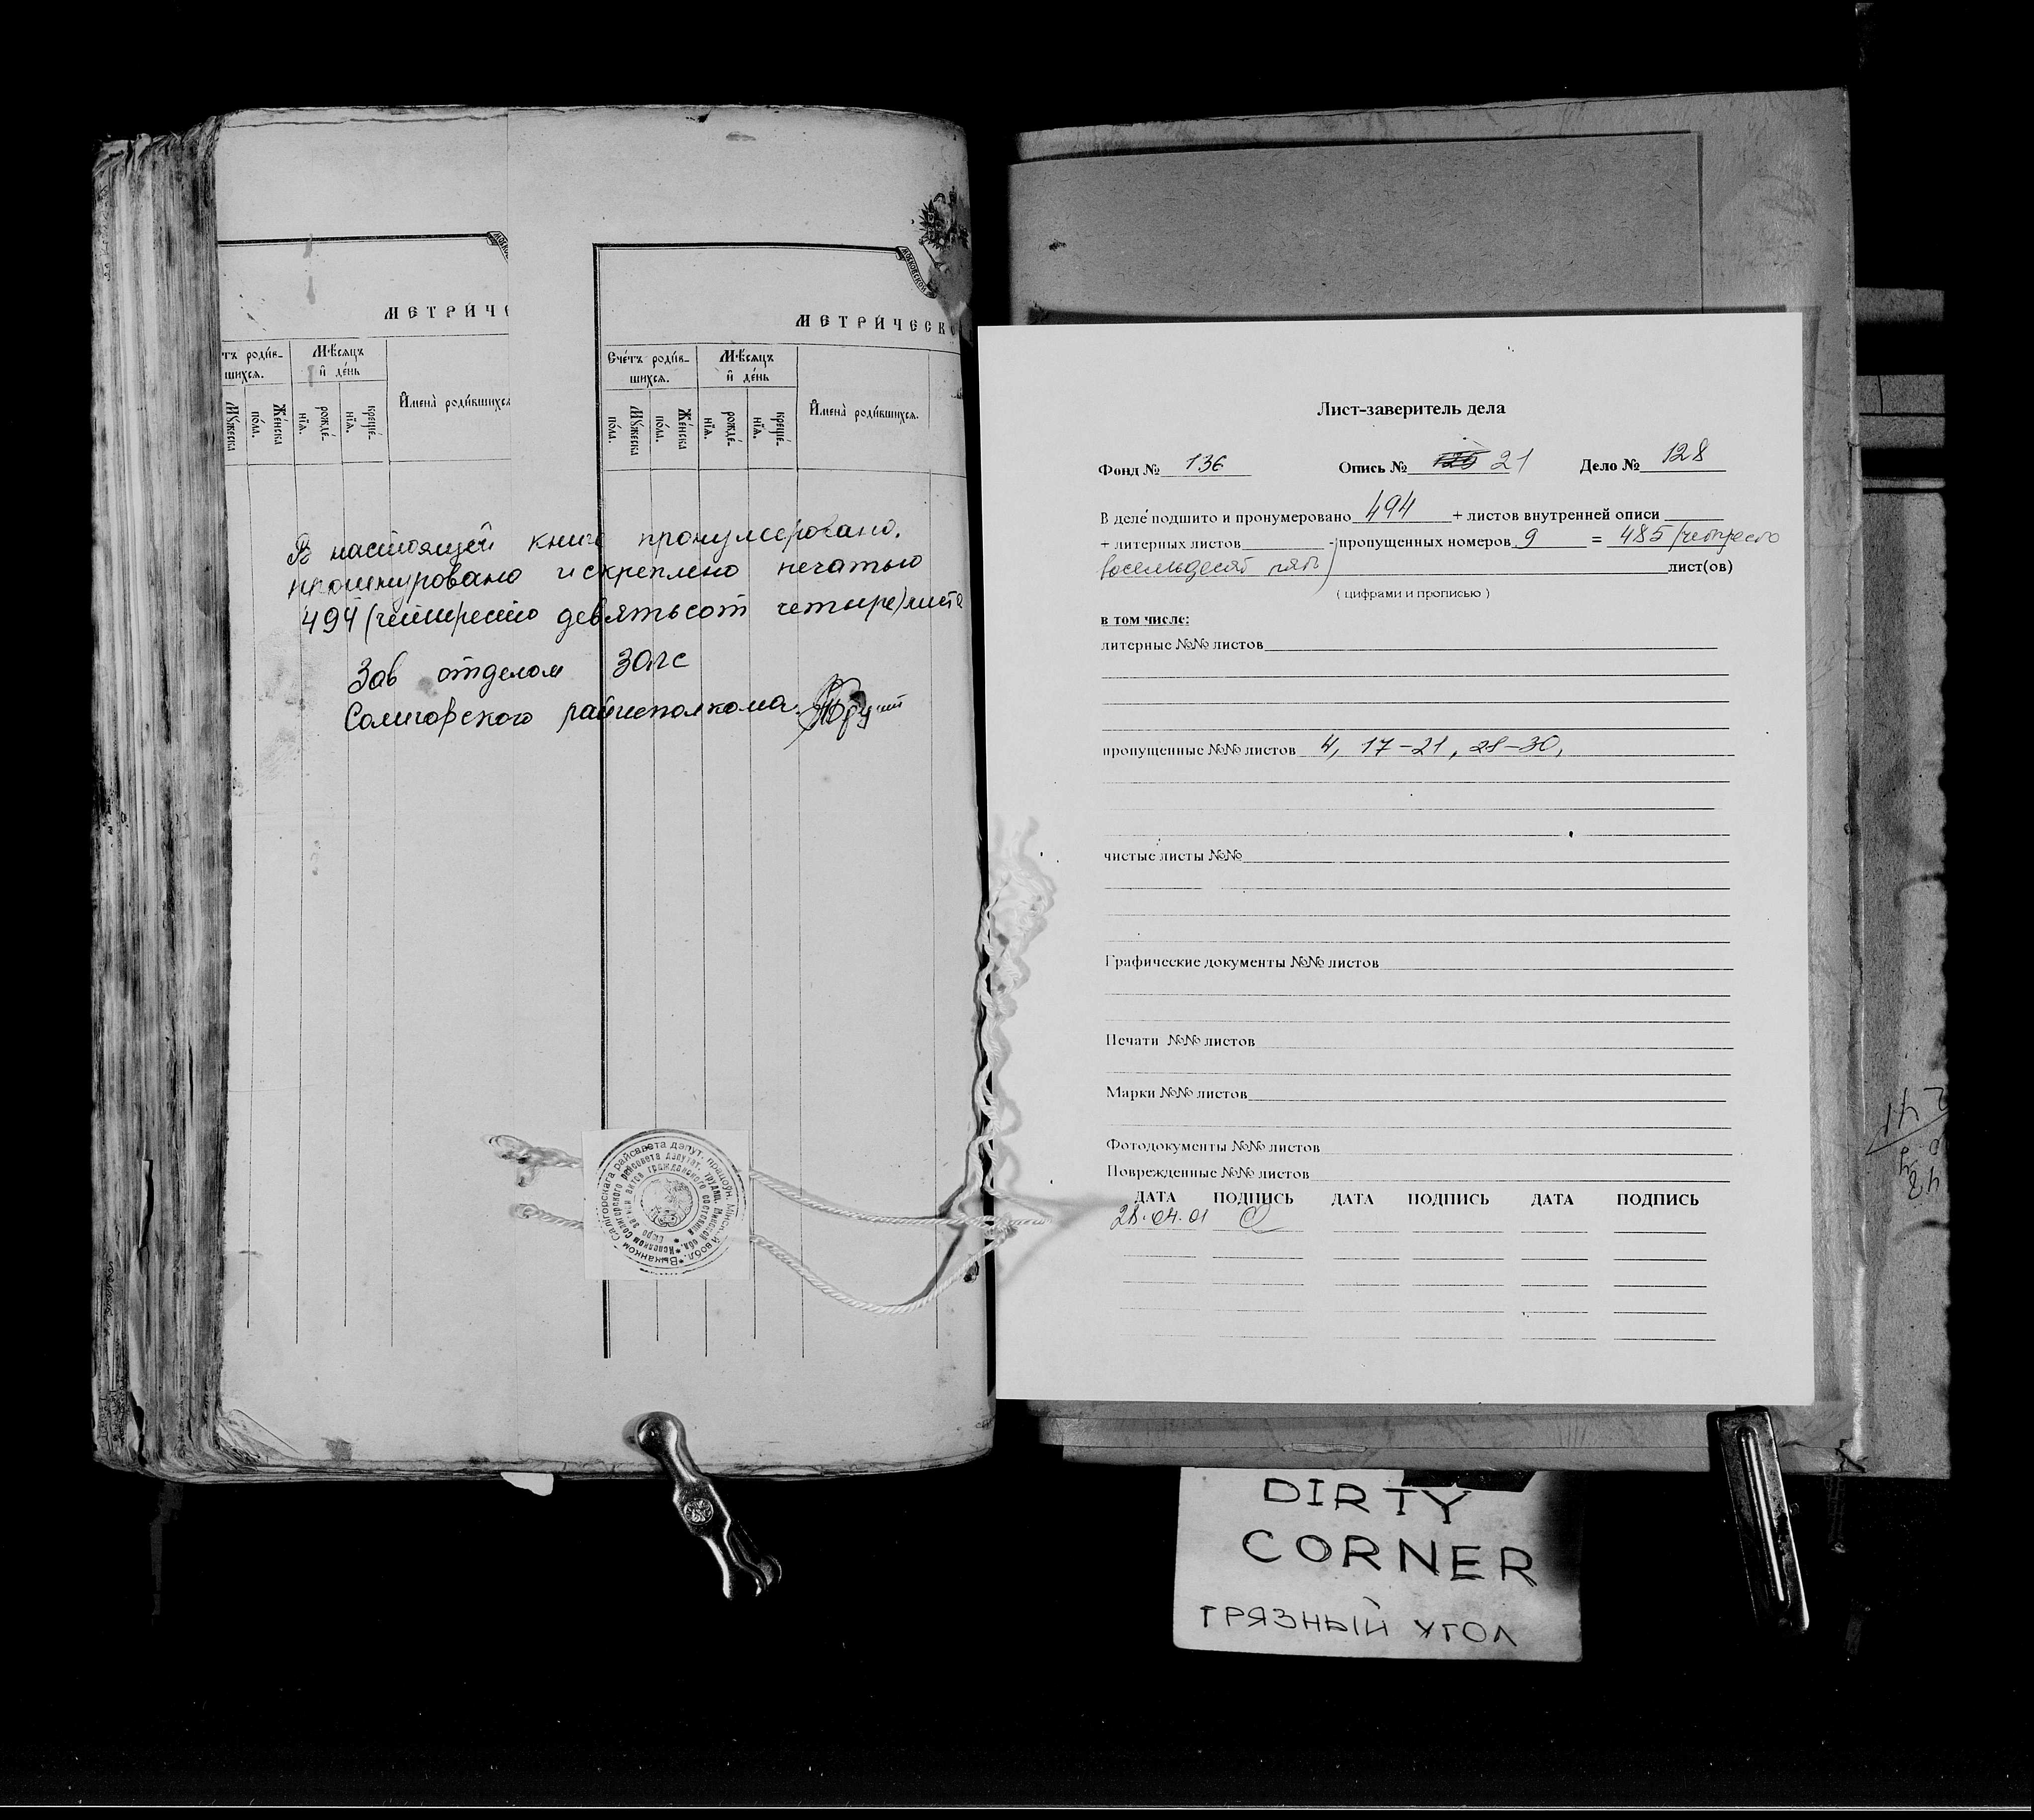 МОСКОВСКОЙ
МЕТРИЧЕСК
тъ роди́в-
шихся.
Мѣ́сяцъ
и҆ де́нь
Мꙋ́жеска
по́ла.
Же́нска
рожде́-
нїѧ.
креще́-
нїѧ.
И҆мена̀ роди́вшихсѧ
Счéтъ роди́в-
шихсѧ.
Мѣ́сяцъ
и҆ де́нь
Мꙋ́жеска
по́ла.
Же́нска
по́ла.
рожде́-
нїѧ.
креще́-
нїѧ.
И҆мена̀ роди́вшихсѧ.
В настоящей книге пронумеровано,
прошнуровано и скреплено печатью
494 (четыреста девятьсот четыре) листа
Зав отделом ЗАГС
Солигорского райисполкома
Лист-заверитель дела
Фонд № 136 Опись № 21 Дело № 128
В деле подшито и пронумеровано 494 + листов внутренней описи
+ литерных листов - пропущенных номеров 9 = 485 (четыреста
восемьдесят пять) лист(ов)
( цифрами и прописью )
в том числе:
литерные №№ листов
пропущенные №№ листов 4, 17-21, 28-30,
чистые листы №№
Графические документы №№ листов
Печати №№ листов
Марки №№ листов
Фотодокументы №№ листов
Поврежденные №№ листов
ДАТА ПОДПИСЬ ДАТА ПОДПИСЬ ДАТА ПОДПИСЬ
28.04.01
DIRTY
CORNER
ГРЯЗНЫЙ УГОЛ